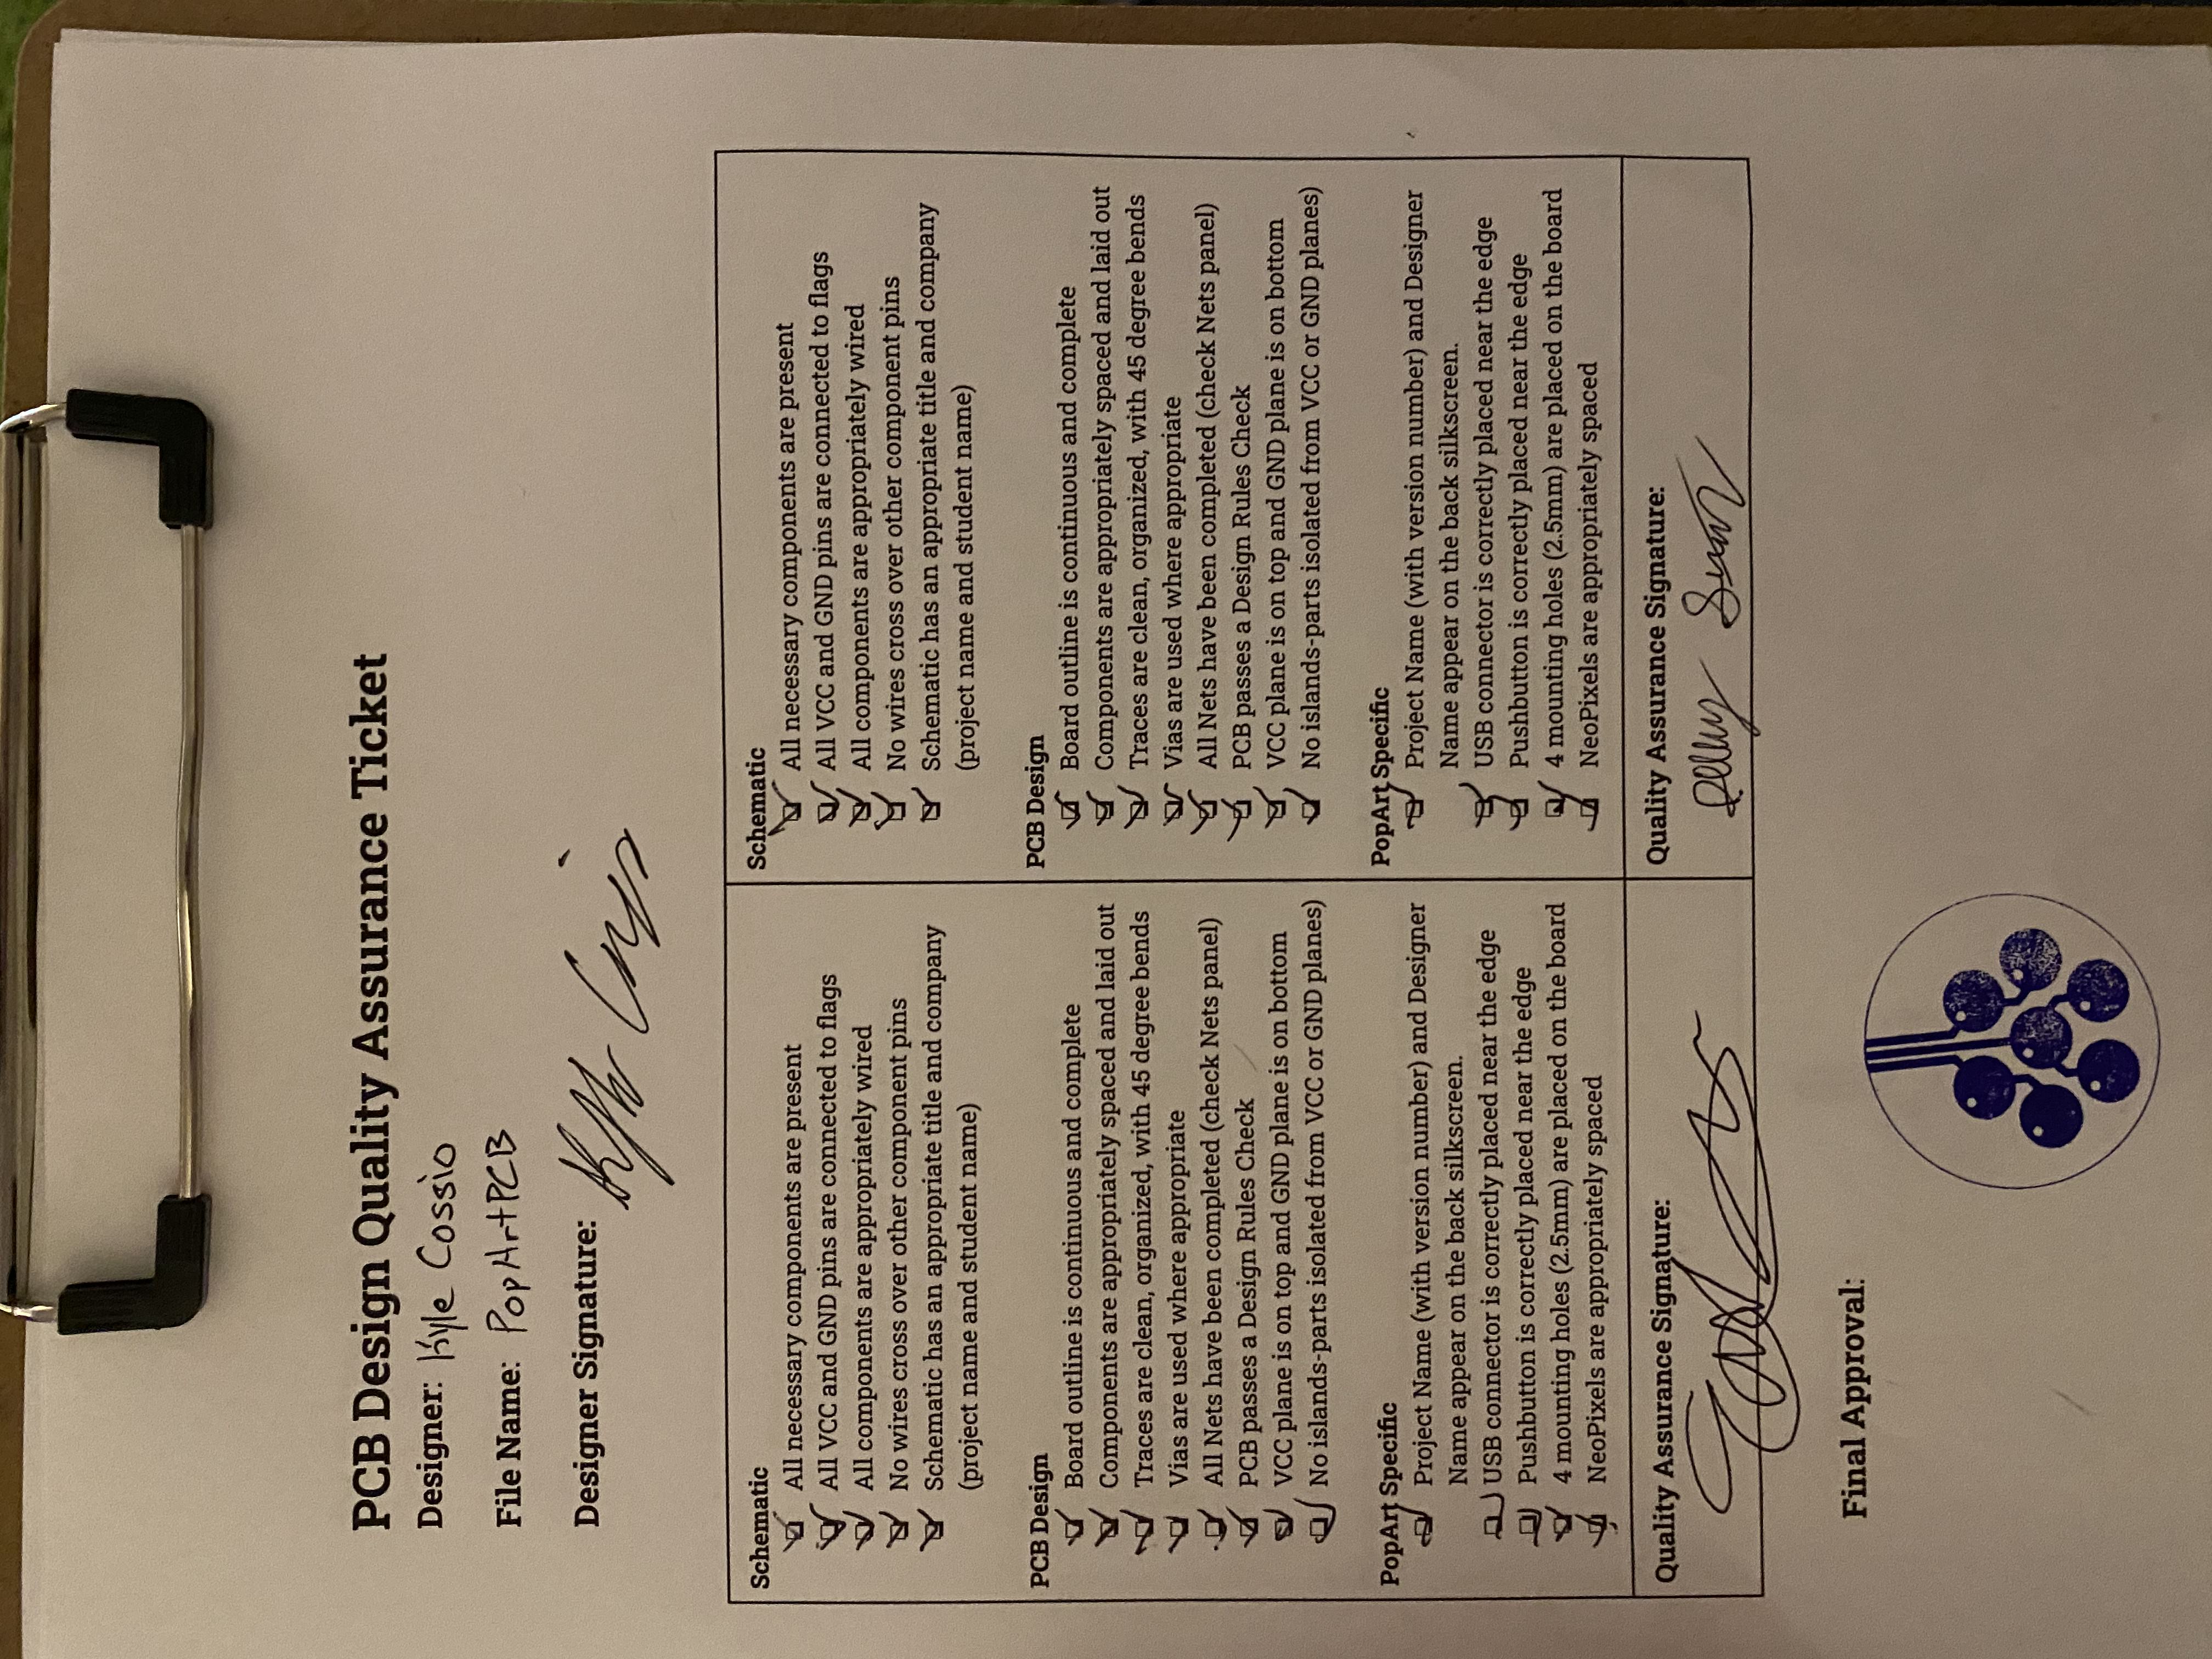 PCB Design Quality Assurance Ticket
Designer: Kyle Cossio
File Name: PopArtPCB
Designer Signature:
Schematic
All necessary components are present
All VCC and GND pins are connected to flags
All components are appropriately wired
No wires cross over other component pins
Schematic has an appropriate title and company
(project name and student name)
PCB Design
Board outline is continuous and complete
Components are appropriately spaced and laid out
Traces are clean, organized, with 45 degree bends
Vias are used where appropriate
All Nets have been completed (check Nets panel)
PCB passes a Design Rules Check
VCC plane is on top and GND plane is on bottom
No islands-parts isolated from VCC or GND planes)
PopArt Specific
Project Name (with version number) and Designer
Name appear on the back silkscreen.
USB connector is correctly placed near the edge
Pushbutton is correctly placed near the edge
4 mounting holes (2.5mm) are placed on the board
NeoPixels are appropriately spaced
Quality Assurance Signature:
Schematic
All necessary components are present
All VCC and GND pins are connected to flags
All components are appropriately wired
No wires cross over other component pins
Schematic has an appropriate title and company
(project name and student name)
PCB Design
Board outline is continuous and complete
Components are appropriately spaced and laid out
Traces are clean, organized, with 45 degree bends
Vias are used where appropriate
All Nets have been completed (check Nets panel)
PCB passes a Design Rules Check
VCC plane is on top and GND plane is on bottom
No islands-parts isolated from VCC or GND planes)
PopArt Specific
Project Name (with version number) and Designer
Name appear on the back silkscreen.
USB connector is correctly placed near the edge
Pushbutton is correctly placed near the edge
4 mounting holes (2.5mm) are placed on the board
NeoPixels are appropriately spaced
Quality Assurance Signature:
Final Approval: